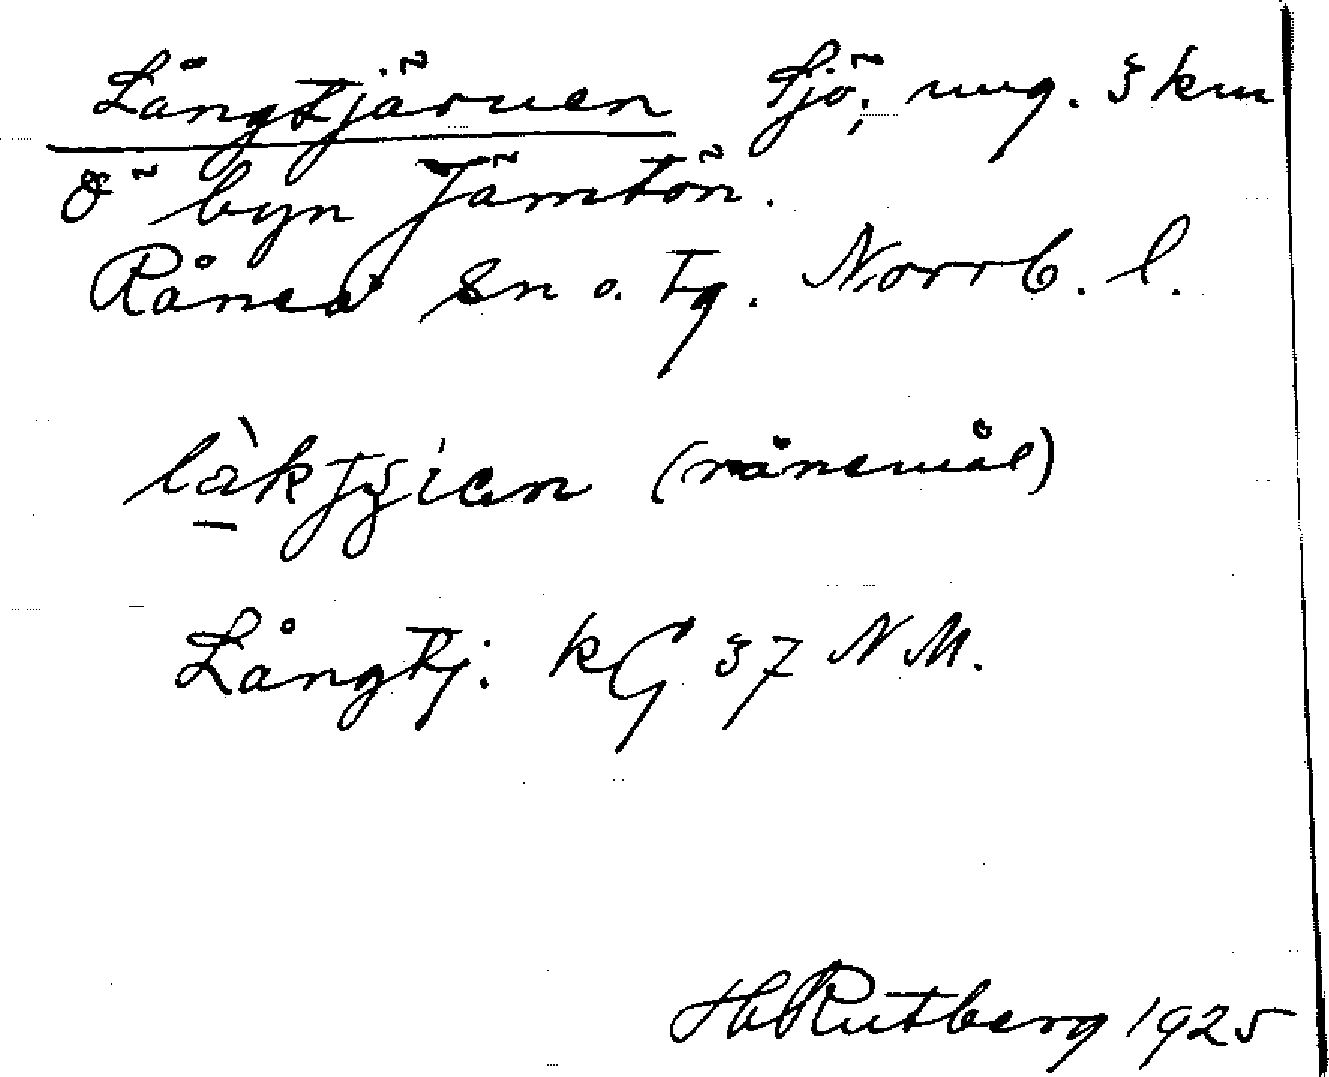 Långtjärnen sjö, ung. 3 km
Ö byn Jämtön.
Råneå sn o. tg. Norrb. l.
(rånemål)
Långtj. kG 37 NM.
H Rutberg 1925